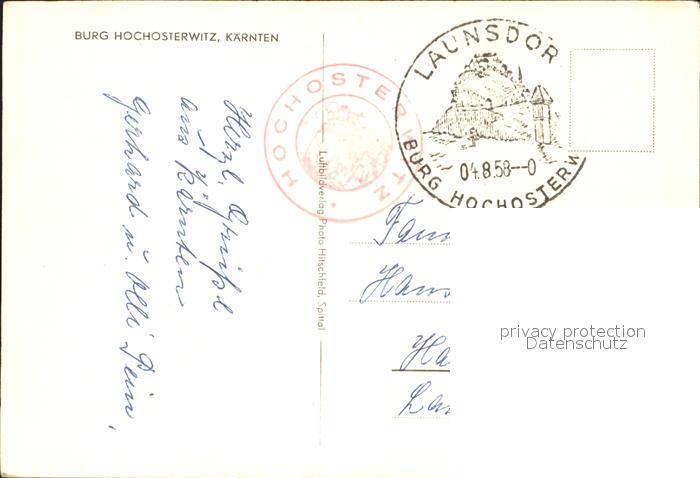 BURG HOCHOSTERWITZ, KÄRNTEN
Herzl. Grüße
aus Kärnten
Gerhard u. Olli
HOCHOSTERWITZ
Luftbildverlag Photo Hitschfeld, Spittal
LAUNSDOR
04.8.58--0
BURG HOCHOSTERW
Fam
Hans
Ha
privacy protection
Datenschutz